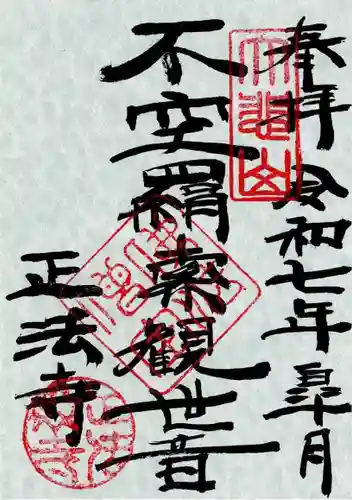 奉拝 令和七年皐月
不空羂索観世音
正法寺